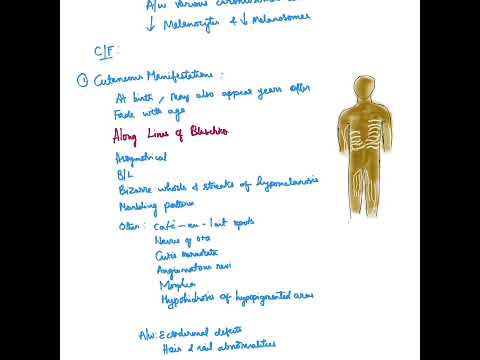 A/w various chromosomal
↓ Melanocytes & ↓ Melanosomes
C/F:
① Cutaneous Manifestations:
At birth, may also appear years after
Fade with age
Along Lines of Blaschko
Asymetrical
B/L
Bizarre whorls & streaks of hypomelanosis
Marbling pattern
Other: Café-au-lait spots
Nevus of ota
Cutis marmorata
Angiomatous nevi
Morphea
Hypohidrosis of hypopigmented areas
A/w: Ectodermal defects
Hair & nail abnormalities